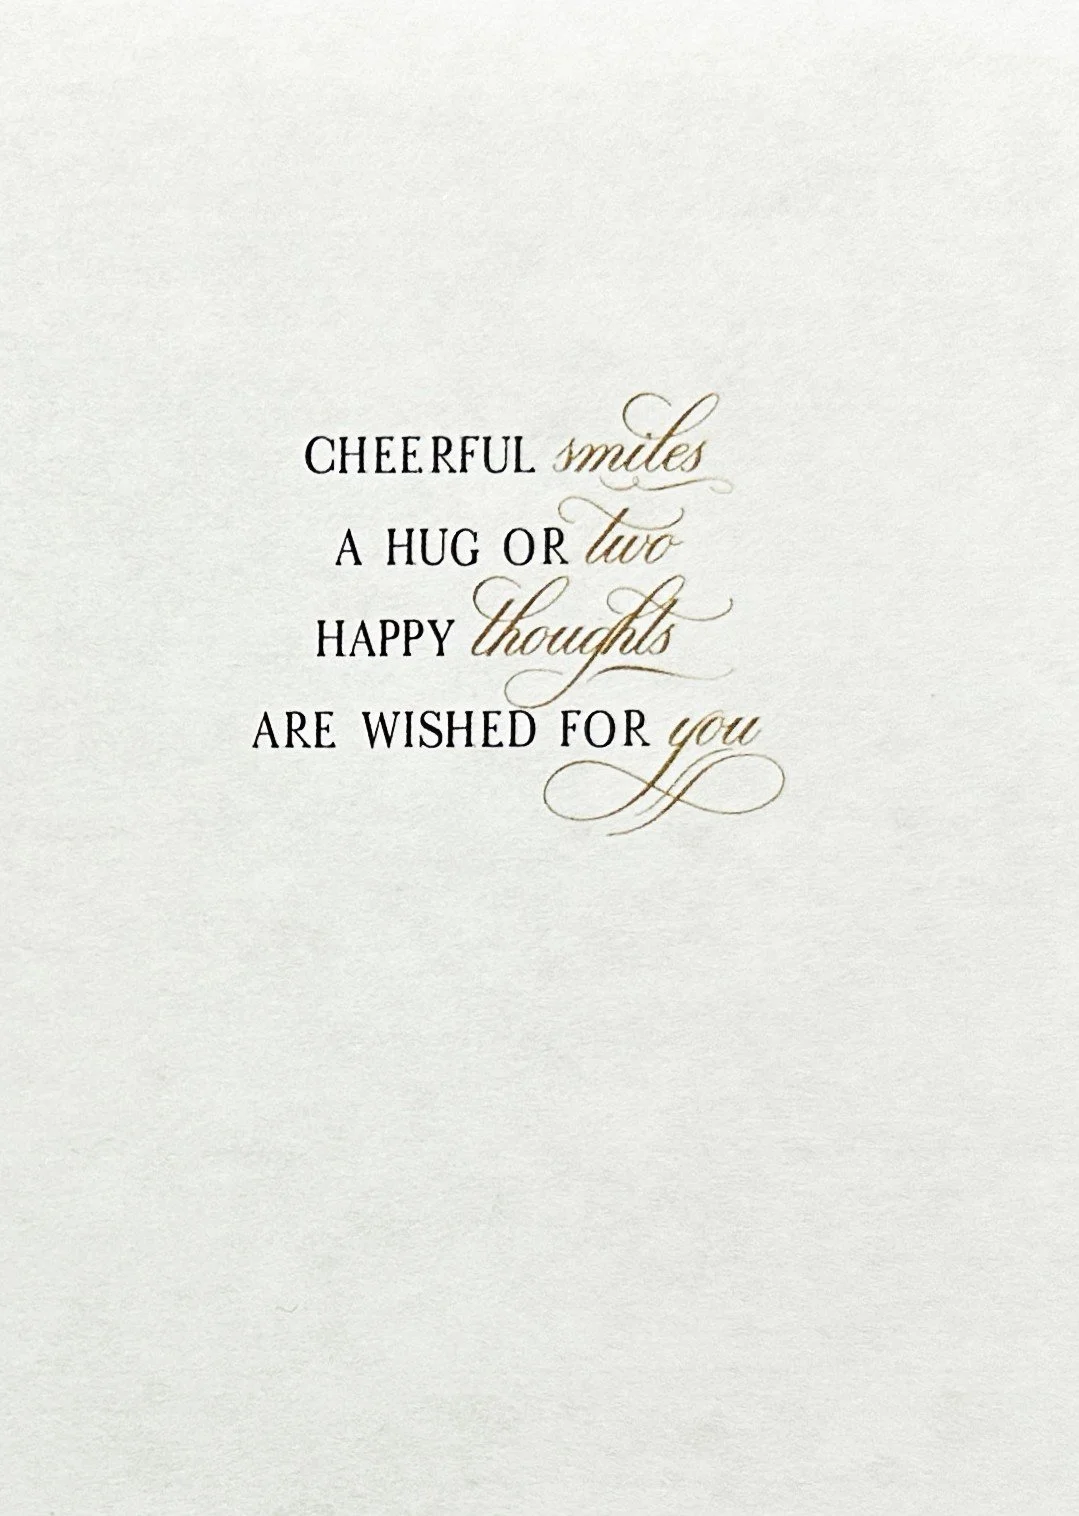 CHEERFUL smiles
A HUG OR two
HAPPY thoughts
ARE WISHED FOR you